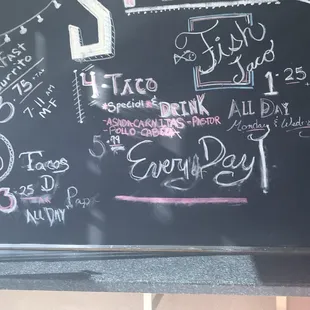 urrito
75
7-11 AM
M-F
Tacos
3.25
ALL DAY
4-TACO
Special & DRINK
ASADA CARNITAS - PASTOR
- POLLO - CABEZA
5.99
Every Day!
Fish
Taco
1.25
ALL DAY
Monday &